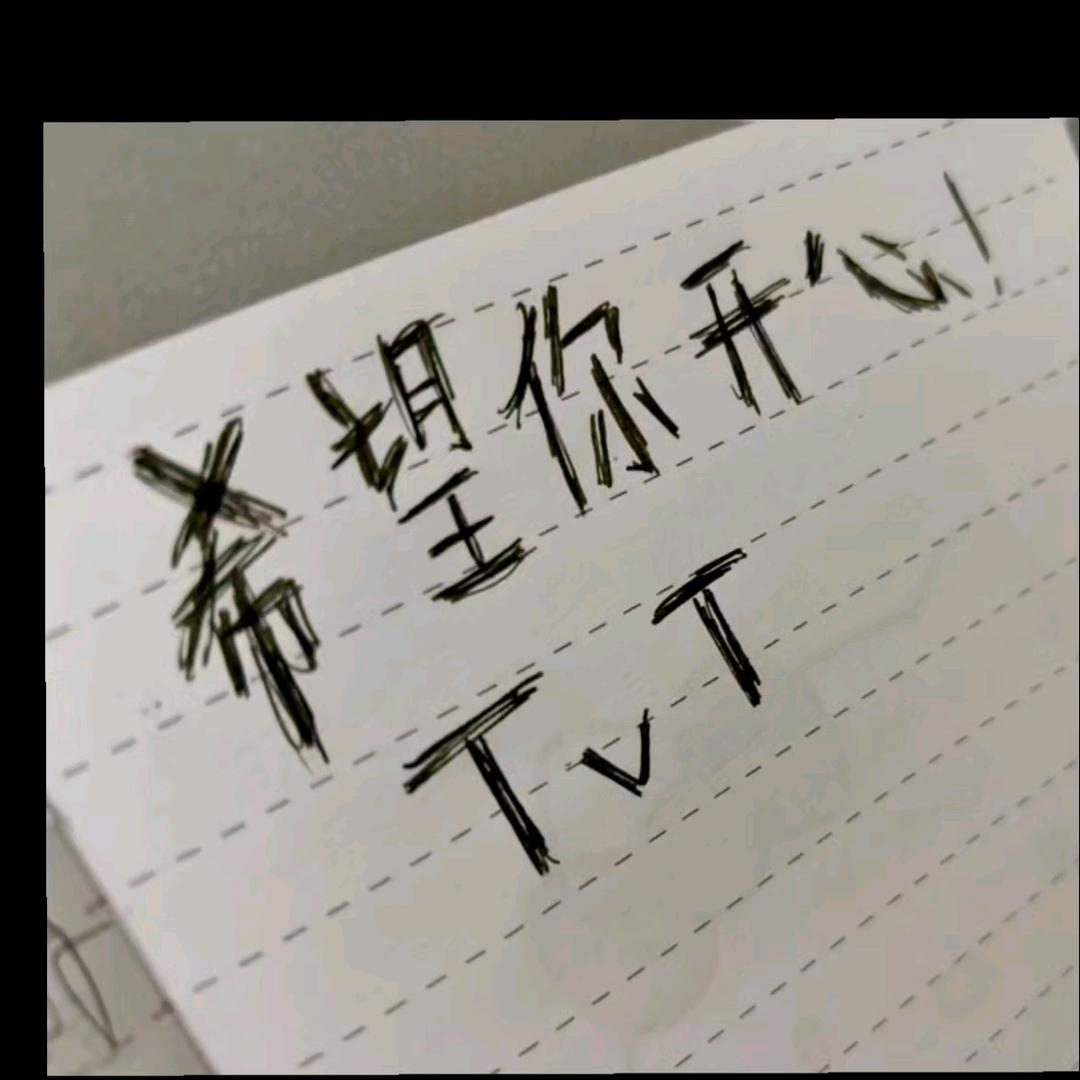 希望你开心!
TvT